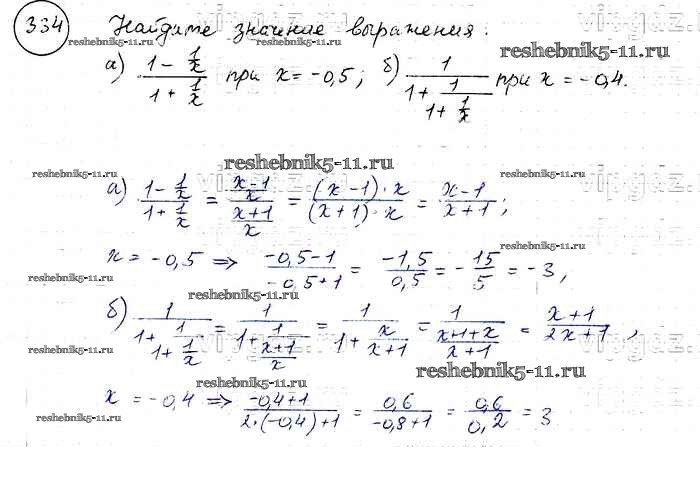 334 Найдите значение выражения:
а) (1 - 1/x)/(1 + 1/x) при x = -0,5; б) 1/(1 + 1/(1 + 1/x)) при x = -0,4.
а) (1 - 1/x)/(1 + 1/x) = ((x-1)/x)/((x+1)/x) = ((x-1)·x)/((x+1)·x) = (x-1)/(x+1);
x = -0,5 ⇒ (-0,5-1)/(-0,5+1) = (-1,5)/(0,5) = -15/5 = -3,
б) 1/(1 + 1/(1 + 1/x)) = 1/(1 + 1/((x+1)/x)) = 1/(1 + x/(x+1)) = 1/((x+1+x)/(x+1)) = (x+1)/(2x+1),
x = -0,4 ⇒ (-0,4+1)/(2·(-0,4)+1) = (0,6)/(-0,8+1) = (0,6)/(0,2) = 3
reshebnik5-11.ru
reshebnik5-11.ru
reshebnik5-11.ru
reshebnik5-11.ru
reshebnik5-11.ru
reshebnik5-11.ru
reshebnik5-11.ru
reshebnik5-11.ru
reshebnik5-11.ru
reshebnik5-11.ru
reshebnik5-11.ru
reshebnik5-11.ru